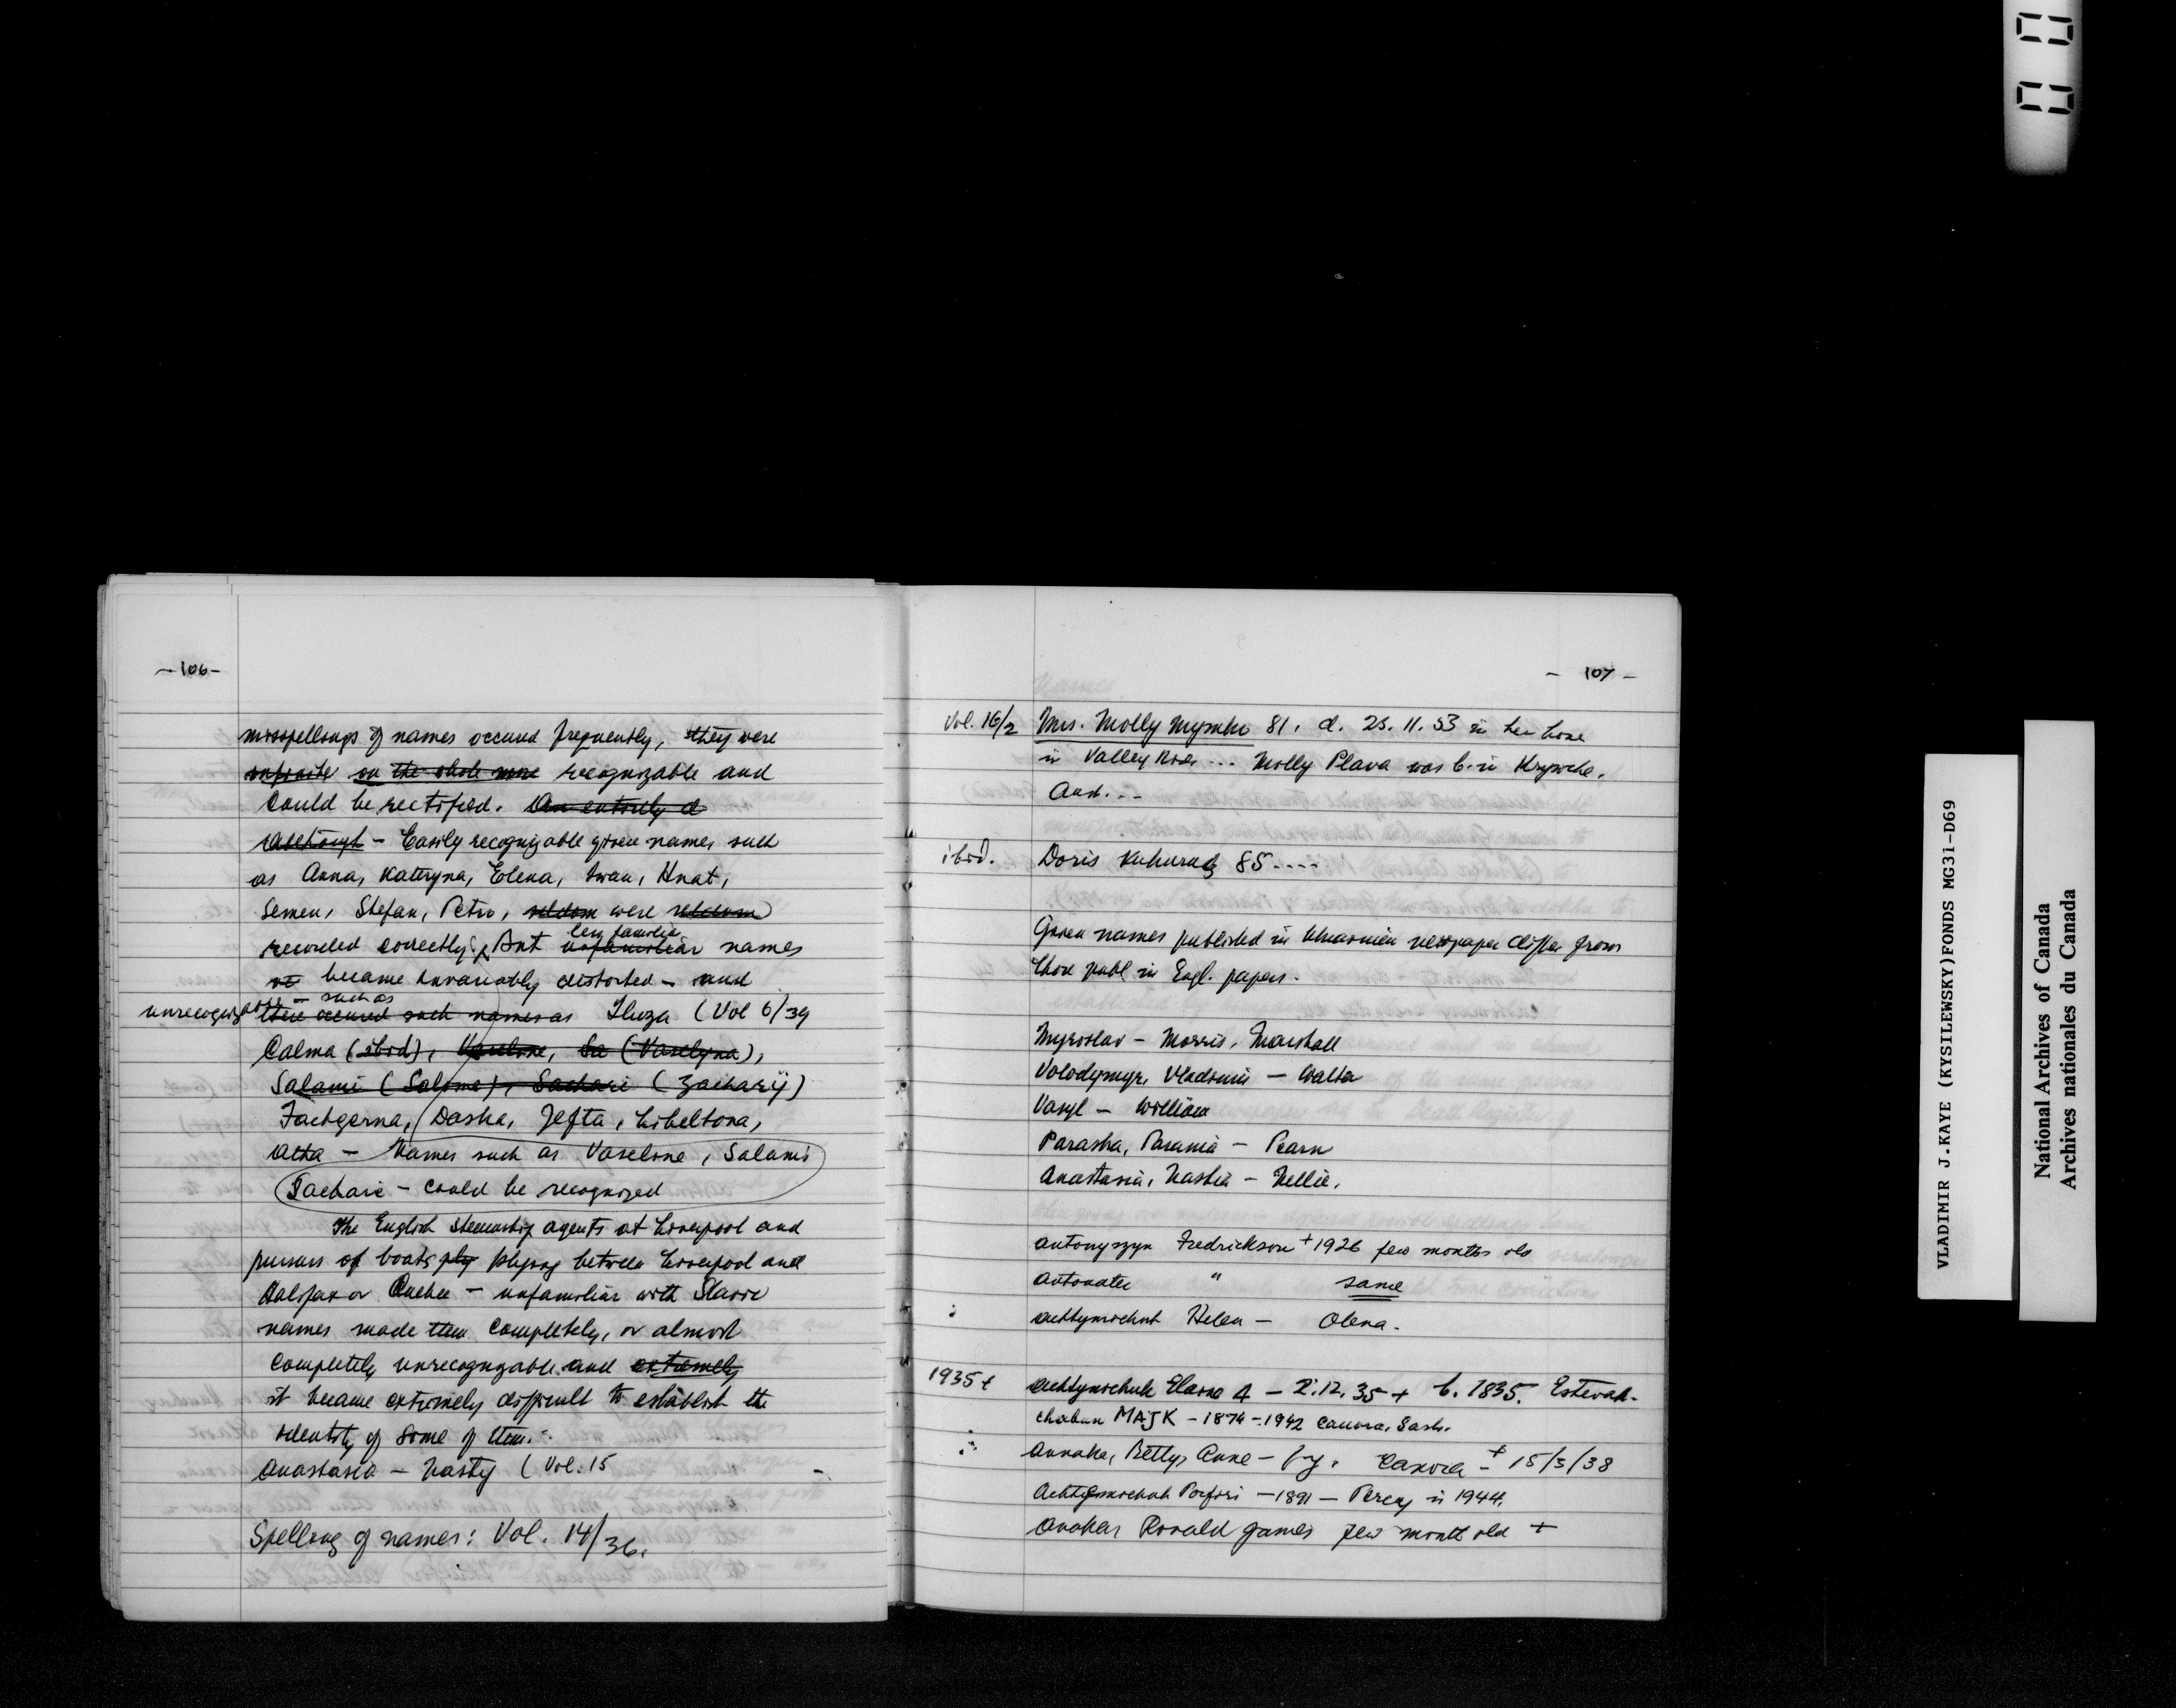 - 106 -
misspellings of names occured frequently, they were
on the whole more recognizable and
could be rectified. An entirely d
Although - Easily recognizable given names such
as Anna, Katryna, Elena, Iwan, Hnat,
Semen, Stefan, Petro, seldom were seldom
recorded correctly. But unfamiliar less familiar names
became invariably distorted - and
unrecognizable - such as there occured such names as Iluza (Vol 6/39
Calma (ibid), Vaseline, Sa (Vaselyna),
Salami (Salome), Sachari (Zacharij)
Fachgerna, Dasha, Jefta, Libeltona,
Alta - Names such as Vaseline, Salami
Sachari - could be recognized
The English steamship agents at Liverpool and
pursurs of boats ply plying between Liverpool and
Halifax or Quebec - unfamiliar with Slavic
names made them completely, or almost
completely unrecognizable and extremely
it became extremely difficult to establish the
identity of some of them.
Anastasia - Nasty (Vol. 15
Spelling of names: Vol. 14/36.
- 107 -
Vol. 16/2 Mrs. Molly 81, d. 23.11.53 in her home
in Valley River ... Molly Plava was b. in Krywche,
Aust. --
ibid. Doris 85 ----
Given names published in Ukrainian newspaper differ from
those publ. in Engl. papers.
Myroslav - Morris, Marshall
Volodymyr, Vladimir - Walter
Vasyl - William
Paraska, Parania - Pearn
Anastasia, Nastia - Nellie.
Antonyszyn Fredrickson + 1926 few months old
Antonater " same
Achtymichuk Helen - Olena.
1935 + Achtymichuk Elasno 4 - 2.12.35 + b. 1835. Estevan.
Chaban MAJK - 1874 - 1942 Canora, Sask.
Annaka, Betty, Anne - Canora - + 15/3/38
Achtymichuk Porfiri - 1891 - Percy in 1944.
Anaka Ronald James few month old +
VLADIMIR J.KAYE (KYSILEWSKY)FONDS MG31-D69
National Archives of Canada
Archives nationales du Canada